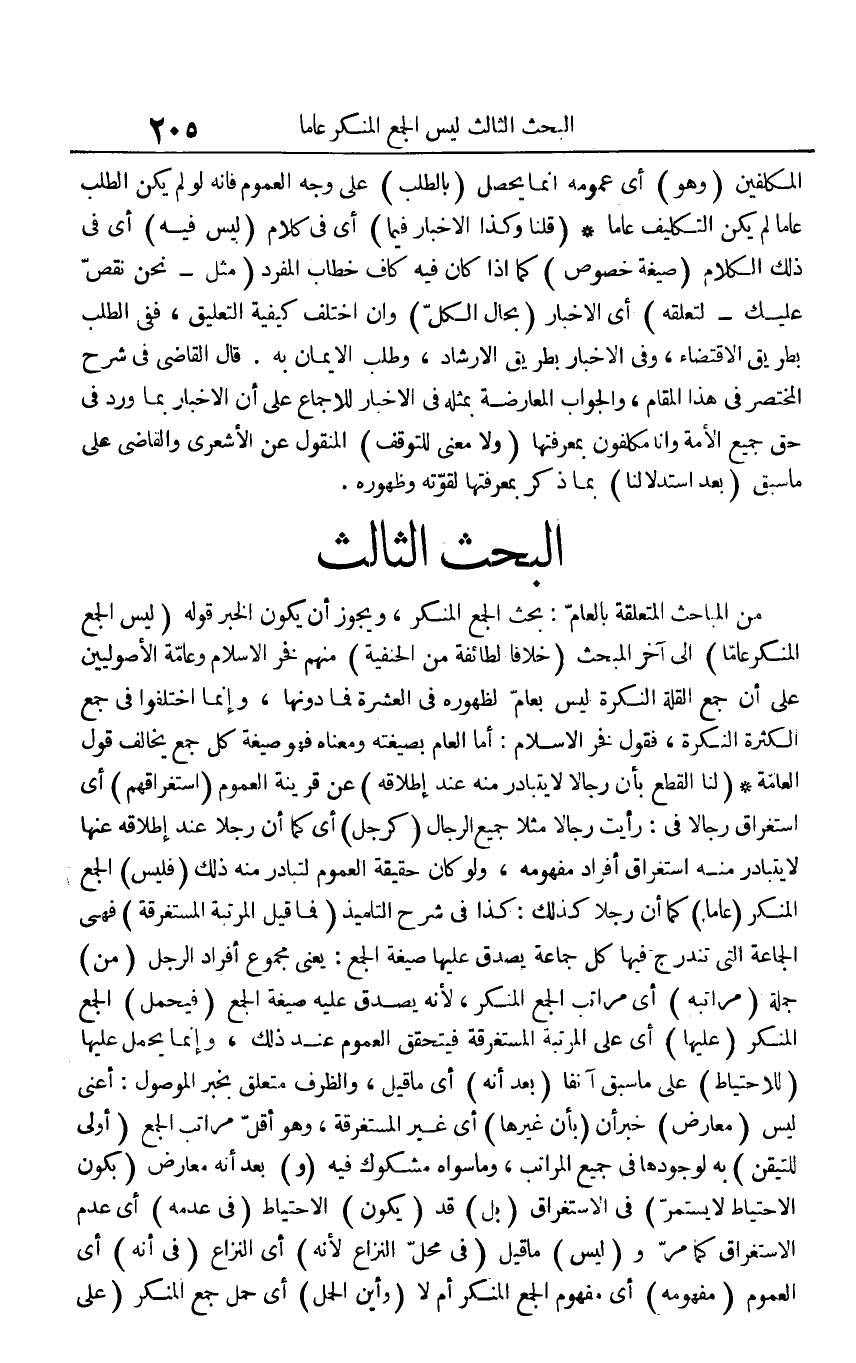 البحث الثالث ليس الجمع المنكر عاما ٢٠٥
المكلفين ( وهو ) أى عمومه انما يحصل ( بالطلب ) على وجه العموم فانه لو لم يكن الطلب
عاما لم يكن التكليف عاما * ( قلنا وكذا الاخبار فيما ) أى فى كلام ( ليس فيه ) أى فى
ذلك الكلام ( صيغة خصوص ) كما اذا كان فيه كاف خطاب المفرد ( مثل ــ نحن نقصّ
عليك ــ لتعلقه ) أى الاخبار ( بحال الكلّ ) وان اختلف كيفية التعليق ، ففى الطلب
بطريق الاقتضاء ، وفى الاخبار بطريق الارشاد ، وطلب الايمان به . قال القاضى فى شرح
المختصر فى هذا المقام ، والجواب المعارضة بمثله فى الاخبار للاجماع على أن الاخبار بما ورد فى
حق جميع الأمة وانا مكلفون بمعرفتها ( ولا معنى للتوقف ) المنقول عن الأشعرى والقاضى على
ماسبق ( بعد استدلالنا ) بما ذكر بمعرفتها لقوّته وظهوره .
البحث الثالث
من المباحث المتعلقة بالعامّ : بحث الجمع المنكر ، ويجوز أن يكون الخبر قوله ( ليس الجمع
المنكر عامّا ) الى آخر المبحث ( خلافا لطائفة من الحنفية ) منهم فخر الاسلام وعامّة الأصوليين
على أن جمع القلة النكرة ليس بعامّ لظهوره فى العشرة فما دونها ، وإنما اختلفوا فى جمع
الكثرة النكرة ، فقول فخر الاسلام : أما العام بصيغته ومعناه فهو صيغة كل جمع يخالف قول
العامّة * ( لنا القطع بأن رجالا لايتبادر منه عند إطلاقه ) عن قرينة العموم (استغراقهم) أى
استغراق رجالا فى : رأيت رجالا مثلا جميع الرجال (كرجل) أى كما أن رجلا عند إطلاقه عنها
لايتبادر منه استغراق أفراد مفهومه ، ولو كان حقيقة العموم لتبادر منه ذلك (فليس) الجمع
المنكر (عاما) كما أن رجلا كذلك : كذا فى شرح التلميذ ( فما قيل المرتبة المستغرقة ) فهى
الجماعة التى تندرج فيها كل جماعة يصدق عليها صيغة الجمع : يعنى مجموع أفراد الرجل ( من )
جملة ( مراتبه ) أى مراتب الجمع المنكر ، لأنه يصدق عليه صيغة الجمع ( فيحمل ) الجمع
المنكر ( عليها ) أى على المرتبة المستغرقة فيتحقق العموم عند ذلك ، وإنما يحمل عليها
( للاحتياط ) على ماسبق آنفا ( بعد أنه ) أى ماقيل ، والظرف متعلق بخبر الموصول : أعنى
ليس ( معارض ) خبر أن (بأن غيرها) أى غير المستغرقة ، وهو أقلّ مراتب الجمع ( أولى
للتيقن ) به لوجودها فى جميع المراتب ، وماسواه مشكوك فيه (و) بعد أنه معارض ( بكون
الاحتياط لايستمرّ ) فى الاستغراق ( بل ) قد ( يكون ) الاحتياط ( فى عدمه ) أى عدم
الاستغراق كما مرّ و ( ليس ) ماقيل ( فى محلّ النزاع لأنه ) أى النزاع ( فى أنه ) أى
العموم ( مفهومه ) أى مفهوم الجمع المنكر أم لا ( وأين الحمل ) أى حمل جمع المنكر ( على